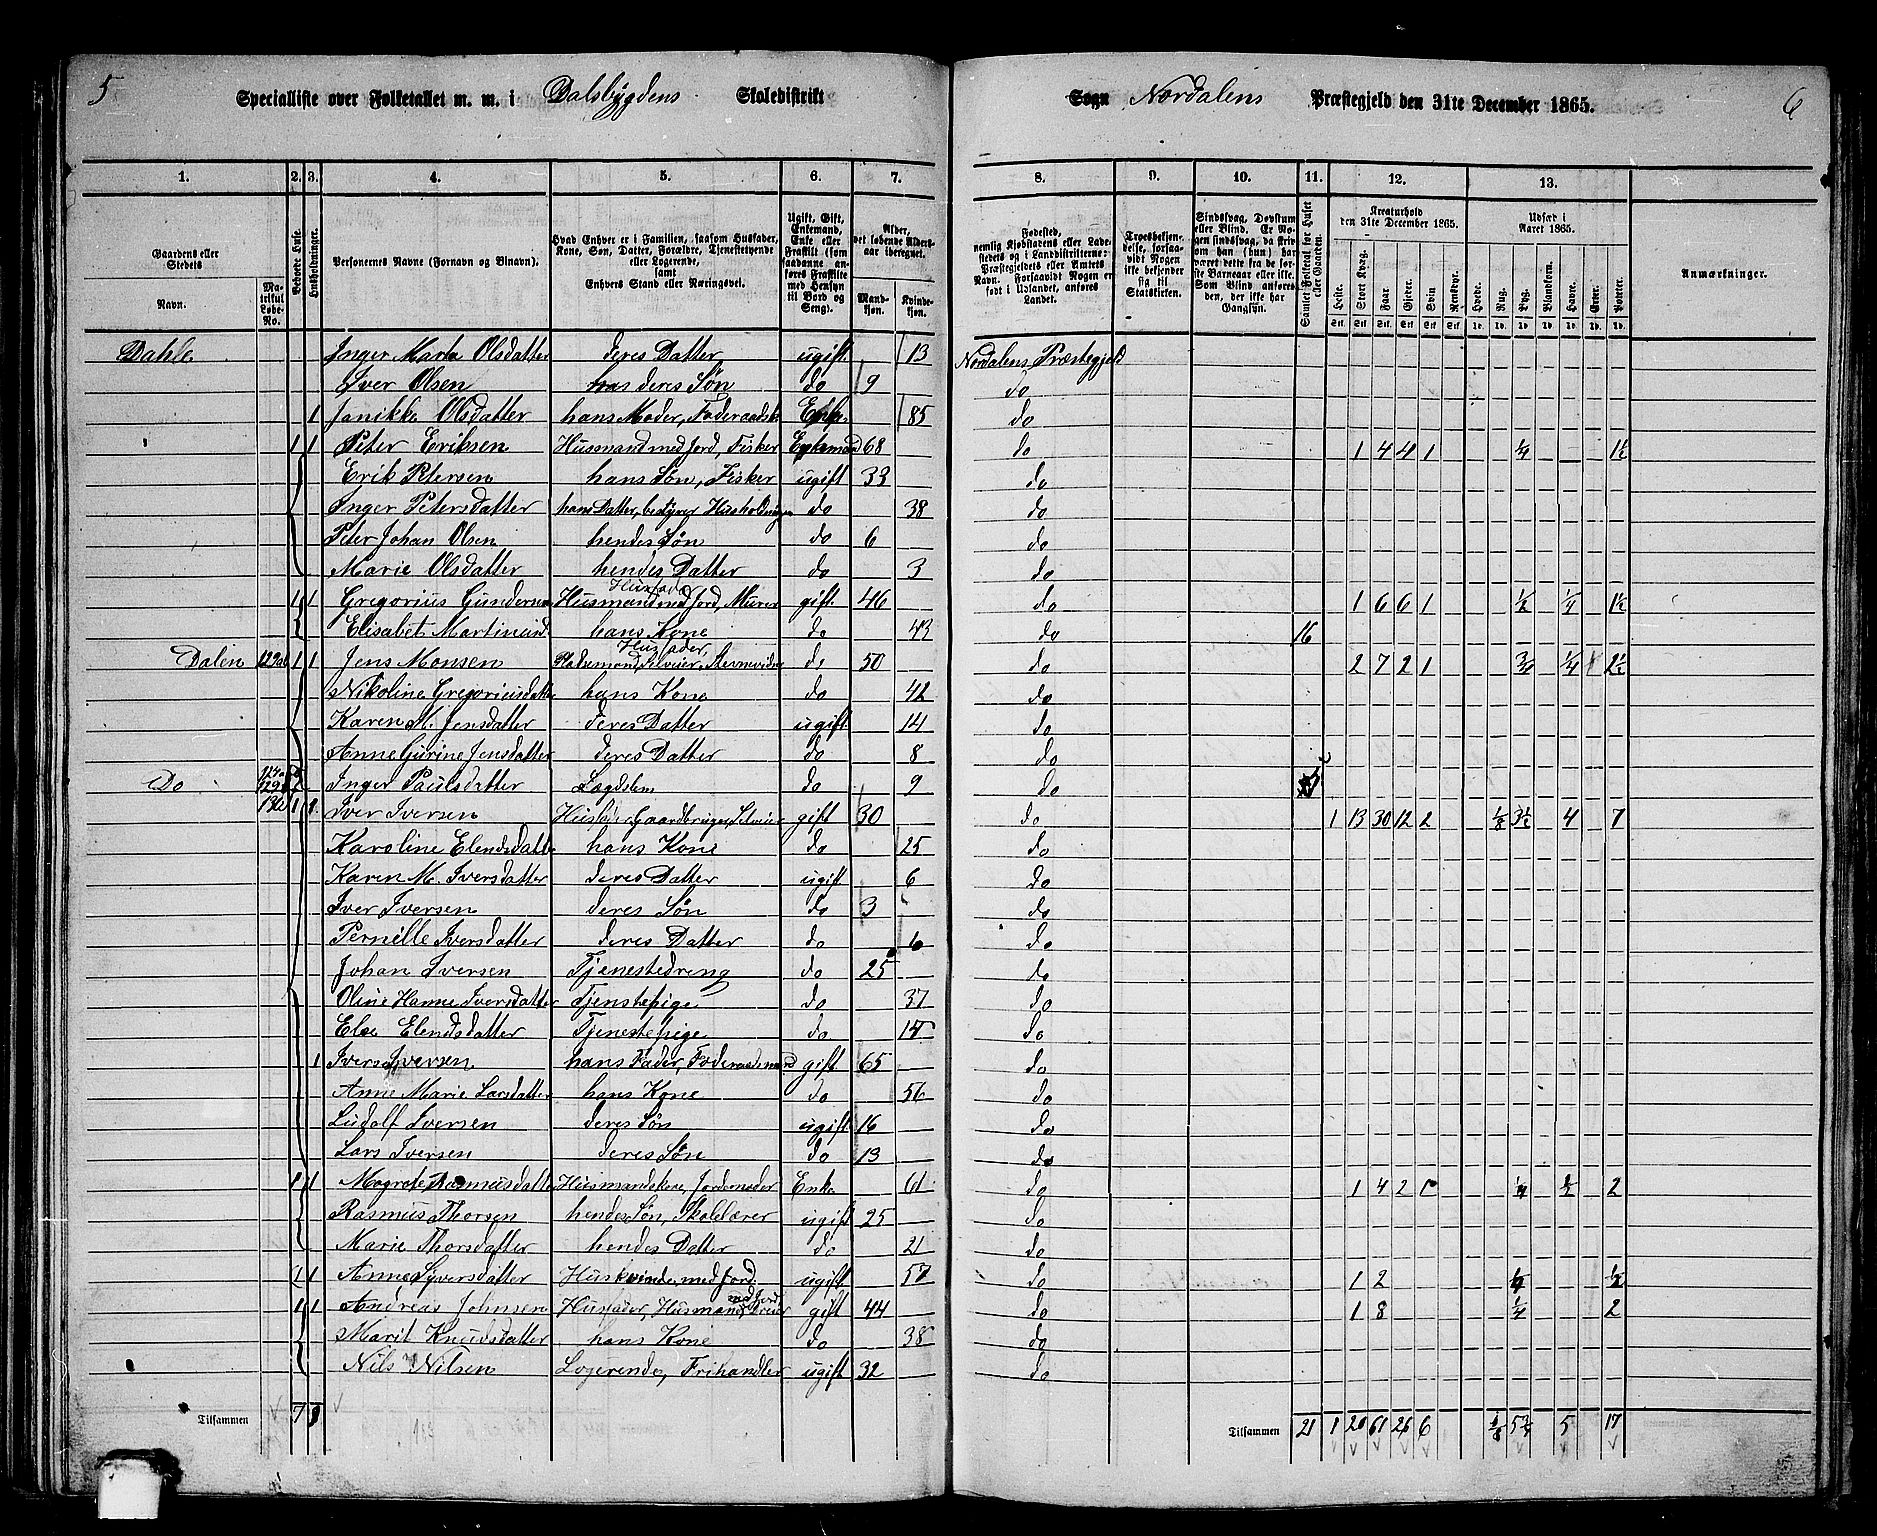 5 Specialliste over Folketallet m. m. i Dalsbygdens Skoledistrikt Sogn Nordalens Præstegjeld den 31te December 1865. 6
1. 2. 3. 4. 5. 6. 7. 8. 9. 10. 11. 12. 13.
Gaardens eller Stedets Navn. Matrikul Løbe-No. Beboede Huse. Husholdninger. Personernes Navne (Fornavn og Binavn). Hvad Enhver er i Familien, saasom Husfader, Kone, Søn, Datter, Forældre, Tjenestetyende eller Logerende, samt Enhvers Stand eller Næringsvei. Ugift, Gift, Enkemand, Enke eller Fraskilt (som saadanne anføres Fraskilte med Hensyn til Bord og Seng). Alder, det løbende Aldersaar iberegnet. Mandkjøn. Kvindekjøn. Fødested, nemlig Kjøbstadens eller Ladestedets og i Landdistrikterne: Præstegjeldets eller Amtets Navn. Forsaavidt Nogen er født i Udlandet, anføres Landet. Troesbekjendelse, forsaavidt Nogen ikke bekjender sig til Statskirken. Sindssvag, Døvstum eller Blind. Er Nogen sindssvag, da skrives, om han (hun) har været dette fra de første Barneaar eller ikke. Som Blind anføres den, der ikke har Gangsyn. Samlet Folketal for Huset eller Gaarden. Kreaturhold den 31te December 1865. Udsæd i Aaret 1865. Anmærkninger.
Heste. Stort Kvæg. Faar. Gjeder. Svin Rensdyr. Hvede. Rug. Byg. Blandkorn. Havre. Erter. Poteter.
Dahle Inger Marta Olsdatter deres Datter ugift 13 Nordalens Præstegjeld
Iver Olsen deres Søn do 9 do
1 Janikke Olsdatter hans Moder, Føderaadsk. Enke 85 do
1 1 Peter Eriksen Husmand med Jord, Fisker Enkemand 68 do 1 4 4 1 ¼ 1½
Erik Petersen hans Søn, Fisker ugift 33 do
Inger Petersdatter hans Datter, bestyrer Husholdningen do 38 do
Peter Johan Olsen hendes Søn do 6 do
Marie Olsdatter hendes Datter do 3 do
1 1 Gregorius Gundersen Husfader Husmand med Jord, Murer gift 46 do 1 6 6 1 ½ ¼ 1½
Elisabet Martinusd. hans Kone do 43 do 16
Dalen 1 1 Jens Monsen Husfader, Pladsemand, Selveier, Stevnevidne do 50 do 2 7 2 1 ¾ ¼ 2½
Nikoline Gregoriusdatter hans Kone do 42 do
Karen M. Jensdatter deres Datter ugift 14 do
Anne Gurine Jensdatter deres Datter do 8 do
Do Inger Paulsdatter Lægdslem do 9 do
1 1 Iver Iversen Husfader, Gaardbruger, Selveier gift 30 do 1 13 30 12 2 ⅛ 3½ 4 7
Karoline Elendsdatter hans Kone do 25 do
Karen M. Iversdatter deres Datter ugift 6 do
Iver Iversen deres Søn do 3 do
Pernille Iversdatter deres Datter do do
Johan Iversen Tjenestedreng do 25 do
Oline Hanne Iversdatter Tjenstepige do 37 do
Else Elendsdatter Tjenestepige do do
1 Iver Iversen hans Fader, Føderaadsmand gift 65 do
Anne Marie Larsdatter hans Kone do 56 do
Ludolf Iversen deres Søn ugift 16 do
Lars Iversen deres Søn do 13 do
1 1 Magrete Rasmusdatter Husmandskone, Jordemoder Enke 61 do 1 4 2 ¼ ½ 2
Rasmus Thorsen hendes Søn, Skolelærer ugift 25 do
Marie Thorsdatter hendes Datter do 21 do
1 1 Anne Syversdatter Huskvinde med Jord. ugift 57 do 1 2 ½
1 1 Andreas Johnsen Husfader, Husmand med Jord gift 44 do 1 8 ¼ 2
Marit Knudsdatter hans Kone do 38 do
Nils Nilsen Logerende, Frihandler ugift 32 do
Tilsammen 7 Tilsammen 21 1 20 61 26 6 ⅛ 5¾ 5 17